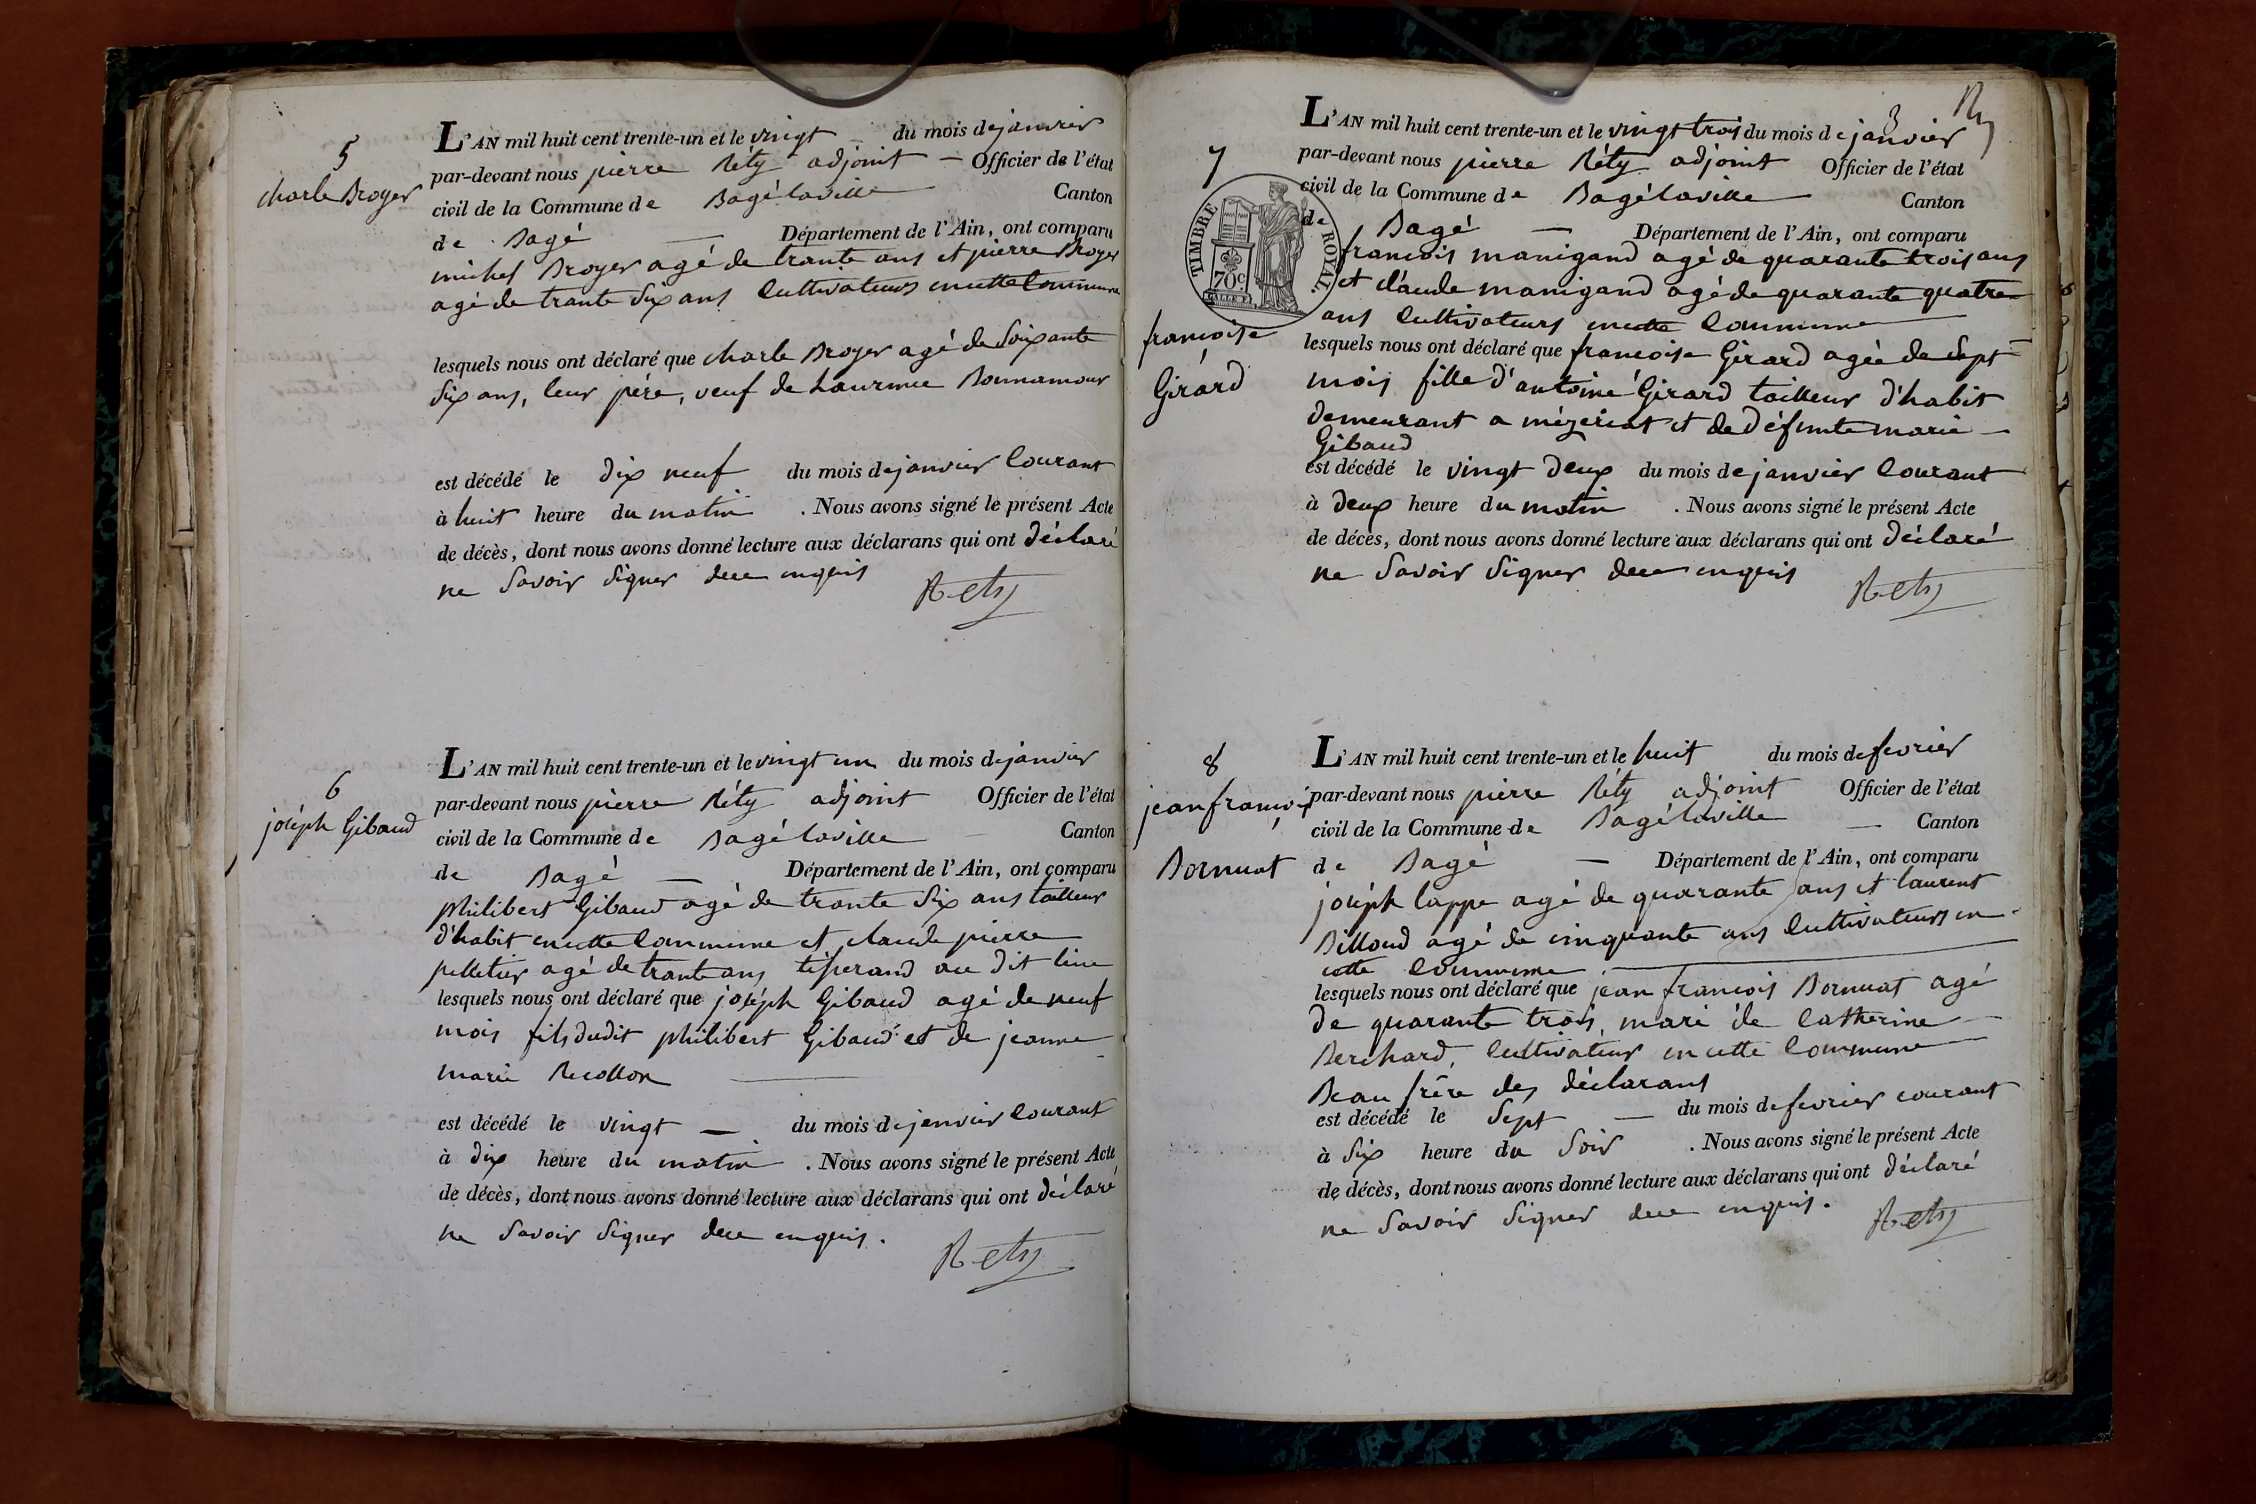 5
charle Broyer
L'AN mil huit cent trente-un et le vingt du mois de janvier
par-devant nous pierre Réty adjoint — Officier de l'état
civil de la Commune de Bagé laville Canton
de Bagé — Département de l'Ain, ont comparu
michel Broyer agé de trante ans et pierre Broyer
agé de trante six ans cultivateurs en cette commune
lesquels nous ont déclaré que charle Broyer agé de soixante
six ans, leur pére, veuf de Laurence Bonnamour
est décédé le dix neuf du mois de janvier courant
à huit heure du matin . Nous avons signé le présent Acte
de décès, dont nous avons donné lecture aux déclarans qui ont déclaré
ne savoir signer de ce enquis
Rety
6
joséph Gibaud
L'AN mil huit cent trente-un et le vingt un du mois de janvier
par-devant nous pierre Réty adjoint Officier de l'état
civil de la Commune de Bagé laville Canton
de Bagé — Département de l'Ain, ont comparu
philibert Gibaud agé de trante six ans tailleur
d'habit en cette commune et claude pierre
pelletier agé de trante ans tisserand au dit lieu
lesquels nous ont déclaré que joséph Gibaud agé de neuf
mois fils dudit philibert Gibaud et de jeanne
marie Recollon
est décédé le vingt — du mois de janvier courant
à dix heure du matin . Nous avons signé le présent Acte
de décès, dont nous avons donné lecture aux déclarans qui ont déclaré
ne savoir signer de ce enquis.
Rety
3
7
L'AN mil huit cent trente-un et le vingt trois du mois de janvier
par-devant nous pierre Réty adjoint Officier de l'état
civil de la Commune de Bagé laville Canton
de Bagé — Département de l'Ain, ont comparu
TIMBRE ROYAL.
70c
francois manigand agé de quarante trois ans
et claude manigand agé de quarante quatre
ans cultivateurs en cette commune
francoise
Girard
lesquels nous ont déclaré que francoise Girard agée de sept
mois fille d'antoine Girard tailleur d'habit
demeurant a mézeriat et de défunte marie —
Gibaud
est décédé le vingt deux du mois de janvier courant
à deux heure du matin . Nous avons signé le présent Acte
de décès, dont nous avons donné lecture aux déclarans qui ont déclaré
ne savoir signer de ce enquis
Rety
8
jean françois
Bornuat
L'AN mil huit cent trente-un et le huit du mois de fevrier
par-devant nous pierre Réty adjoint Officier de l'état
civil de la Commune de Bagé laville — Canton
de Bagé — Département de l'Ain, ont comparu
joséph lappe agé de quarante ans et laurent
Billoud agé de cinquante ans cultivateurs en
cette commune
lesquels nous ont déclaré que jean francois Bornuat agé
de quarante trois, mari de Catherine
Berchard, cultivateur en cette commune
Beau frère des déclarans
est décédé le sept — du mois de fevrier courant
à six heure du soir . Nous avons signé le présent Acte
de décès, dont nous avons donné lecture aux déclarans qui ont déclaré
ne savoir signer de ce enquis.
Rety